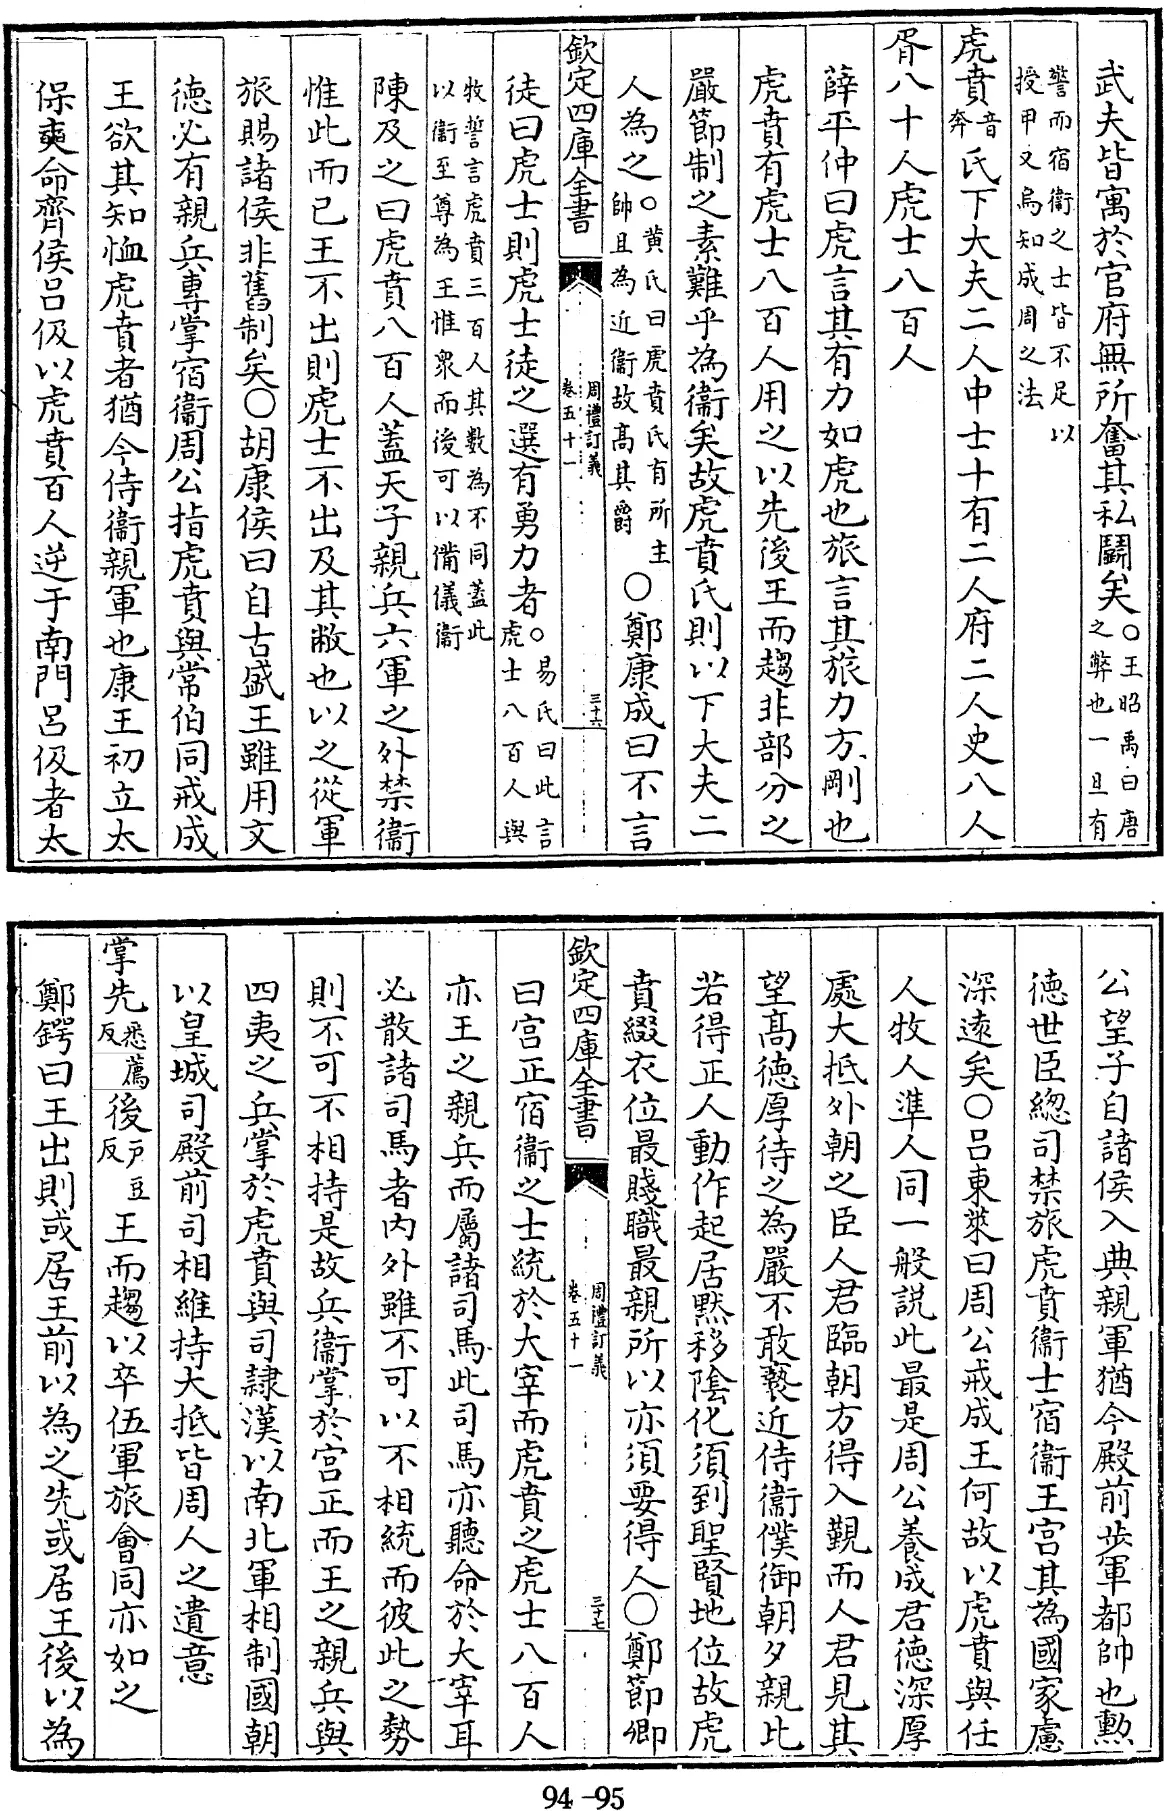 武夫皆寓於官府無所奮其私鬬矣○王昭禹曰唐之弊也一旦有
警而宿衞之士皆不足以授甲又烏知成周之法
虎賁音奔氏下大夫二人中士十有二人府二人史八人
胥八十人虎士八百人
薛平仲曰虎言其有力如虎也旅言其旅力方剛也
虎賁有虎士八百人用之以先後王而趨非部分之
嚴節制之素難乎為衞矣故虎賁氏則以下大夫二
人為之○黄氏曰虎賁氏有所主帥且為近衞故髙其爵○鄭康成曰不言
欽定四庫全書
周禮訂義
卷五十一
三十六
徒曰虎士則虎士徒之選有勇力者○易氏曰此言虎士八百人與
牧誓言虎賁三百人其數為不同葢此以衞至尊為王惟衆而後可以備儀衞
陳及之曰虎賁八百人葢天子親兵六軍之外禁衞
惟此而已王不出則虎士不出及其敝也以之從軍
旅賜諸侯非舊制矣○胡康侯曰自古盛王雖用文
徳必有親兵專掌宿衞周公指虎賁與常伯同戒成
王欲其知恤虎賁者猶今侍衞親軍也康王初立太
保奭命齊侯吕伋以虎賁百人逆于南門吕伋者太
公望子自諸侯入典親軍猶今殿前歩軍都帥也勲
徳世臣總司禁旅虎賁衞士宿衞王宫其為國家慮
深逺矣○吕東萊曰周公戒成王何故以虎賁與任
人牧人準人同一般説此最是周公養成君徳深厚
處大抵外朝之臣人君臨朝方得入覲而人君見其
望髙徳厚待之為嚴不敢䙝近侍衞僕御朝夕親比
若得正人動作起居黙移隂化須到聖賢地位故虎
賁綴衣位最賤職最親所以亦須要得人○鄭節卿
欽定四庫全書
周禮訂義
卷五十一
三十七
曰宫正宿衞之士統於大宰而虎賁之虎士八百人
亦王之親兵而屬諸司馬此司馬亦聽命於大宰耳
必散諸司馬者内外雖不可以不相統而彼此之勢
則不可不相持是故兵衞掌於宫正而王之親兵與
四夷之兵掌於虎賁與司隷漢以南北軍相制國朝
以皇城司殿前司相維持大抵皆周人之遺意
掌先悉薦反後戸豆反王而趨以卒伍軍旅㑹同亦如之
鄭鍔曰王出則或居王前以為之先或居王後以為
94-95